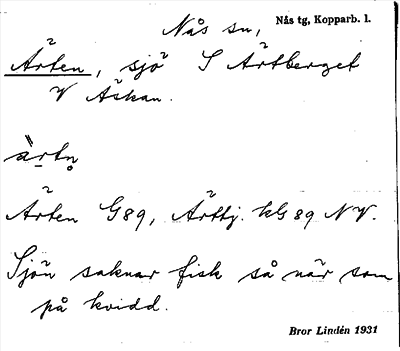 Nås sn, Nås tg, Kopparb. l.
Ärten, sjö S Ärtberget
V Äskan.
ä̀rtn̥
Ärten G89, Ärttj. kG89 NV.
Sjön saknar fisk så när som
på kvidd.
Bror Lindén 1931